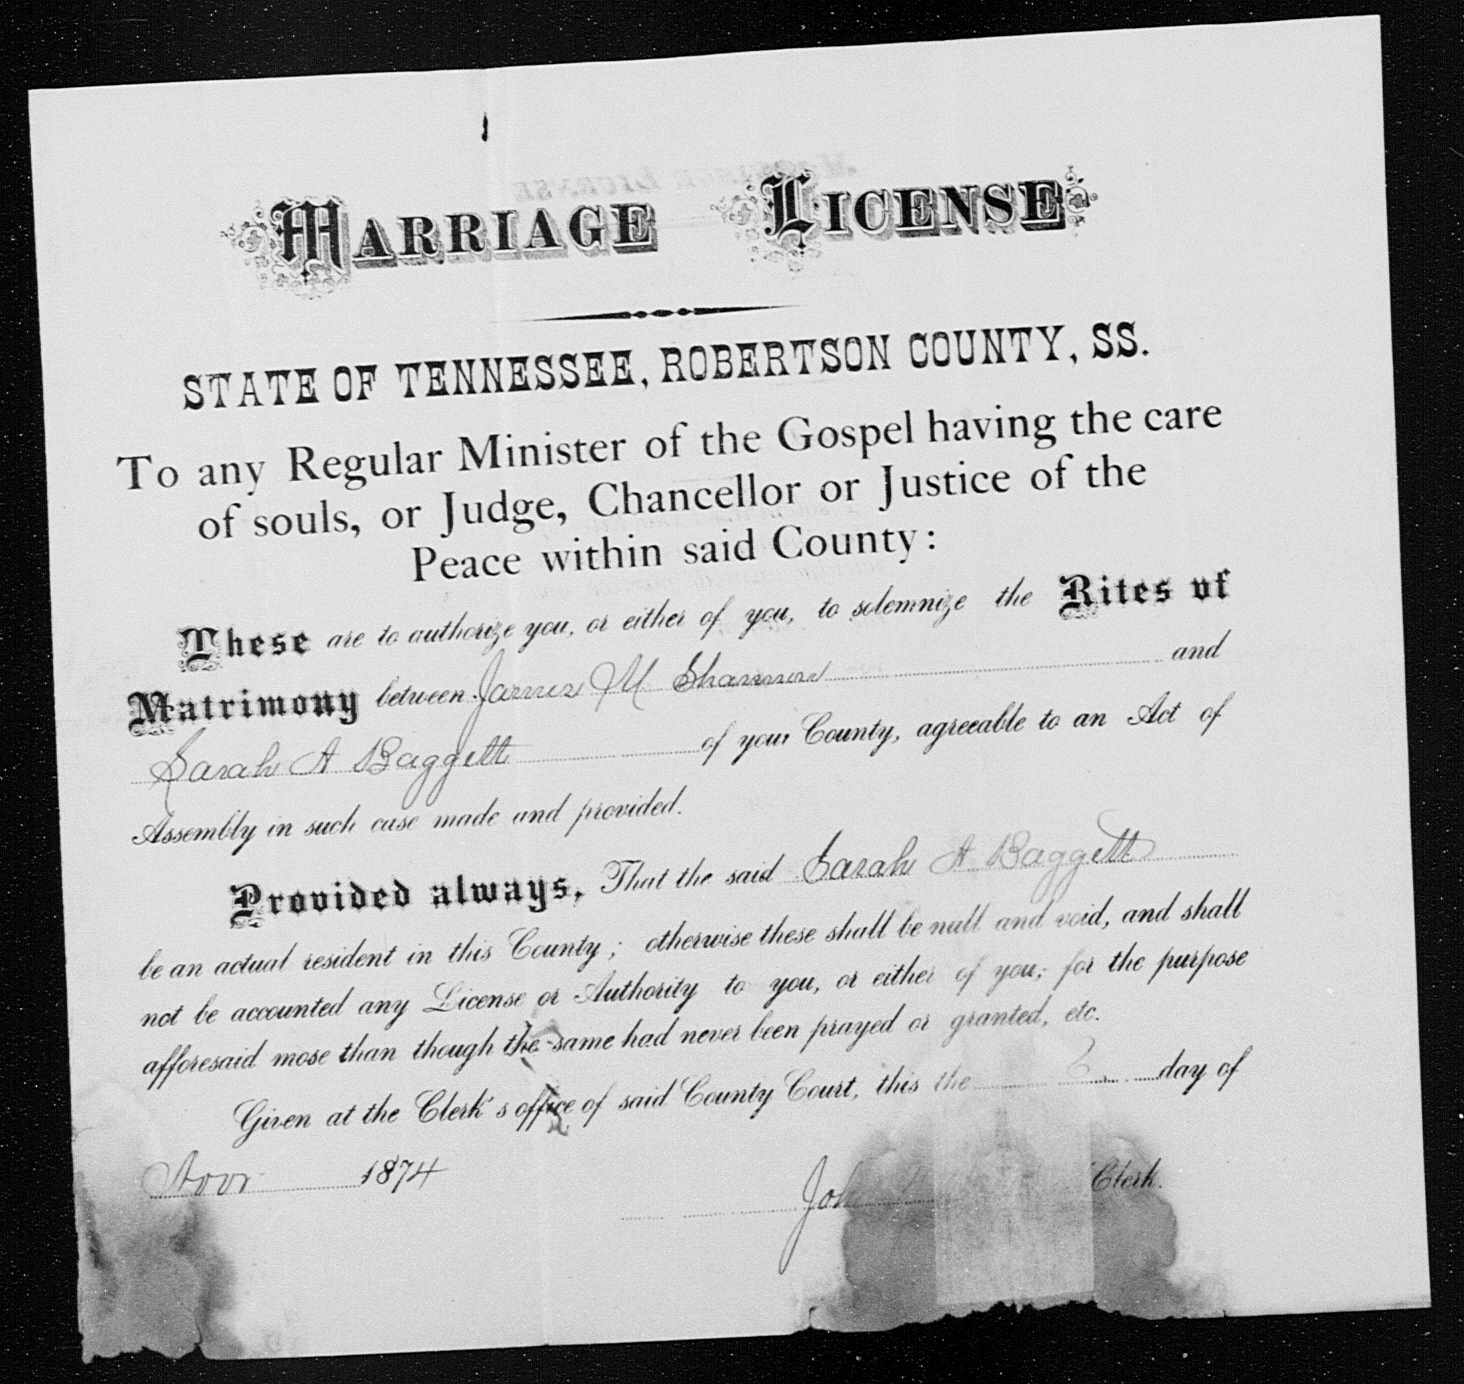 MARRIAGE LICENSE
STATE OF TENNESSEE, ROBERTSON COUNTY, SS.
To any Regular Minister of the Gospel having the care
of souls, or Judge, Chancellor or Justice of the
Peace within said County:
These are to authorize you, or either of you, to solemnize the Rites of
Matrimony between James M Shannon and
Sarah A Baggett of your County, agreeable to an Act of
Assembly in such case made and provided.
Provided always, That the said Sarah A Baggett
be an actual resident in this County; otherwise these shall be null and void, and shall
not be accounted any License or Authority to you, or either of you; for the purpose
afforesaid mose than though the same had never been prayed or granted, etc.
Given at the Clerk's office of said County Court, this the day of
Novr 1874
Clerk.